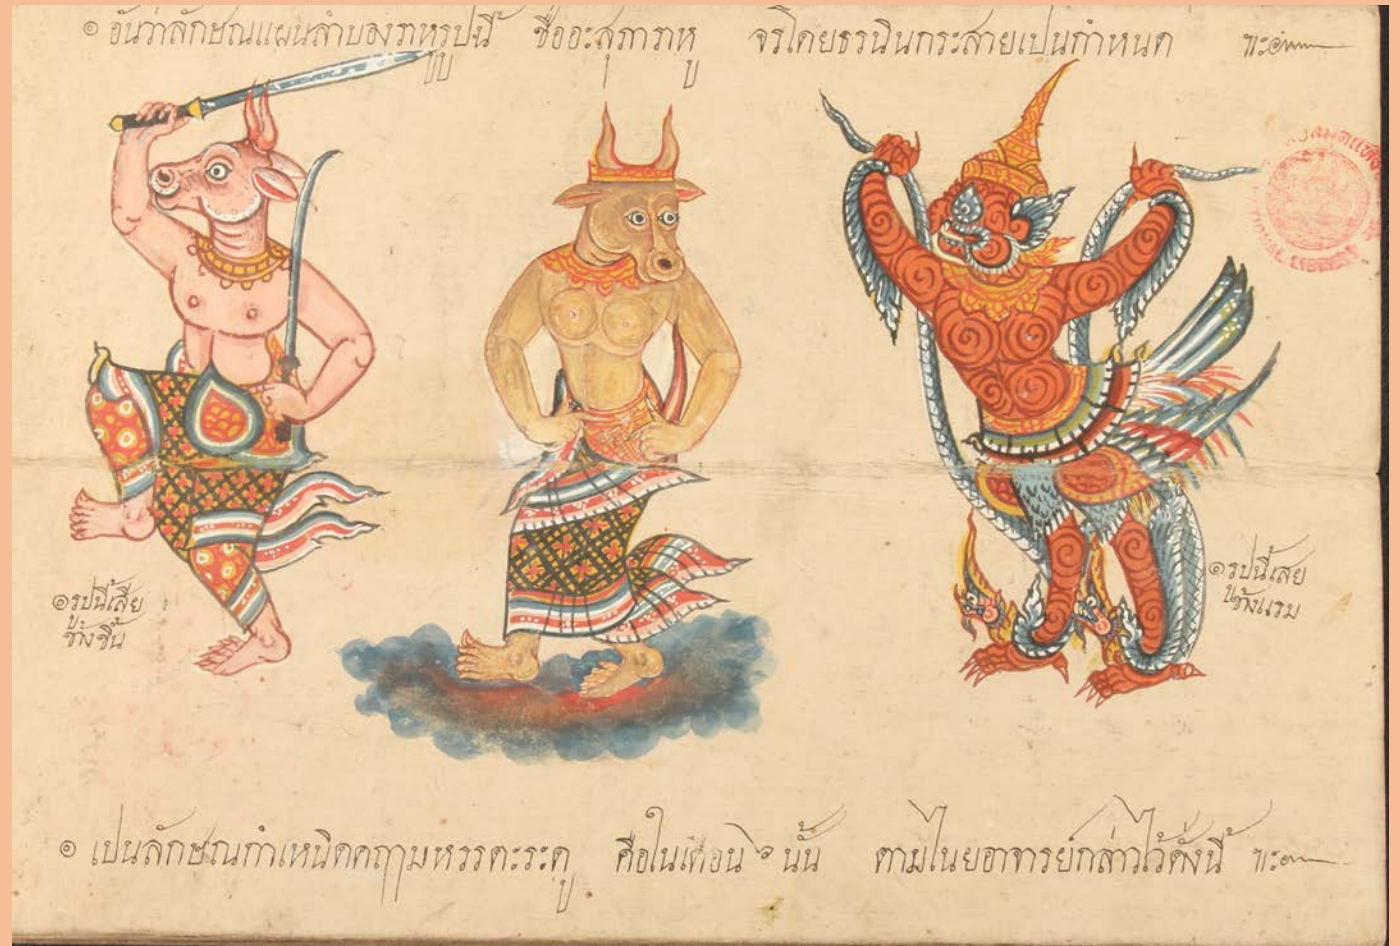 ๏ อันว่าลักษณแผนลำบองราหูรูปนี้ ชื่ออะสุภาราหู จรโดยธรนินกระสายเปนกำหนด
๏ รูปนี้เสีย
ข้างขึ้น
๏ รูปนี้เสีย
ข้างแรม
๏ เปนลักษณกำเหนิดคฤามหรรตะระดู คือในเดือน ๖ นั้น ตามไนยอาจารย์กล่าวไว้ดั่งนี้